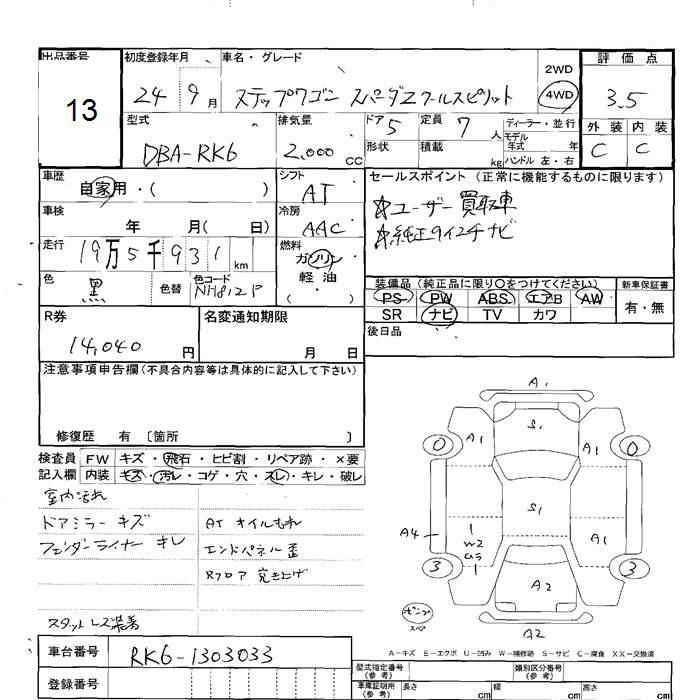 出品番号
13
初度登録年月
24 9月
車名・グレード
ステップワゴン スパーダZクールスピリット
2WD
4WD
評価点
3.5
型式
DBA-RK6
排気量
2,000 CC
ドア 5
定員 7 人
形状
積載 kg
ディーラー・並行
モデル年式 年
ハンドル 左・右
外装 内装
C C
車歴
自家用・( )
シフト
AT
セールスポイント (正常に機能するものに限ります)
☆ユーザー買取車
☆純正9インチナビ
車検
年 月( 日)
冷房
AAC
走行
19万5千931km
燃料
ガソリン
軽油
( )
色
黒
色替
色コード
NH812P
装備品(純正品に限り○をつけてください)
新車保証書
PS PW ABS エアB AW
SR ナビ TV カワ
有・無
R券
14,040円
名変通知期限
月 日
後日品
注意事項申告欄(不具合内容等は具体的に記入して下さい)
修復歴 有 〔箇所 〕
検査員記入欄
FW キズ・飛石・ヒビ割・リペア跡・×要
内装 キズ・汚レ・コゲ・穴・スレ・キレ・破レ
室内汚れ
ドアミラーキズ
ATオイルもれ
フェンダーライナーキレ
エンドパネル歪
Rフロア突き上げ
スタットレス装着
A1
0 A1 S1 A1 0
S1
A4 1 W2 U3 1 A1
3 A2 3
テンプ
スペア
A2
A-キズ E-エクボ U-凹み W-補修跡 S-サビ C-腐食 XX-交換済
車台番号
RK6-1303033
登録番号
型式指定番号(参考)
類別区分番号(参考)
車庫証明用(参考)
長さ cm
幅 cm
高さ cm